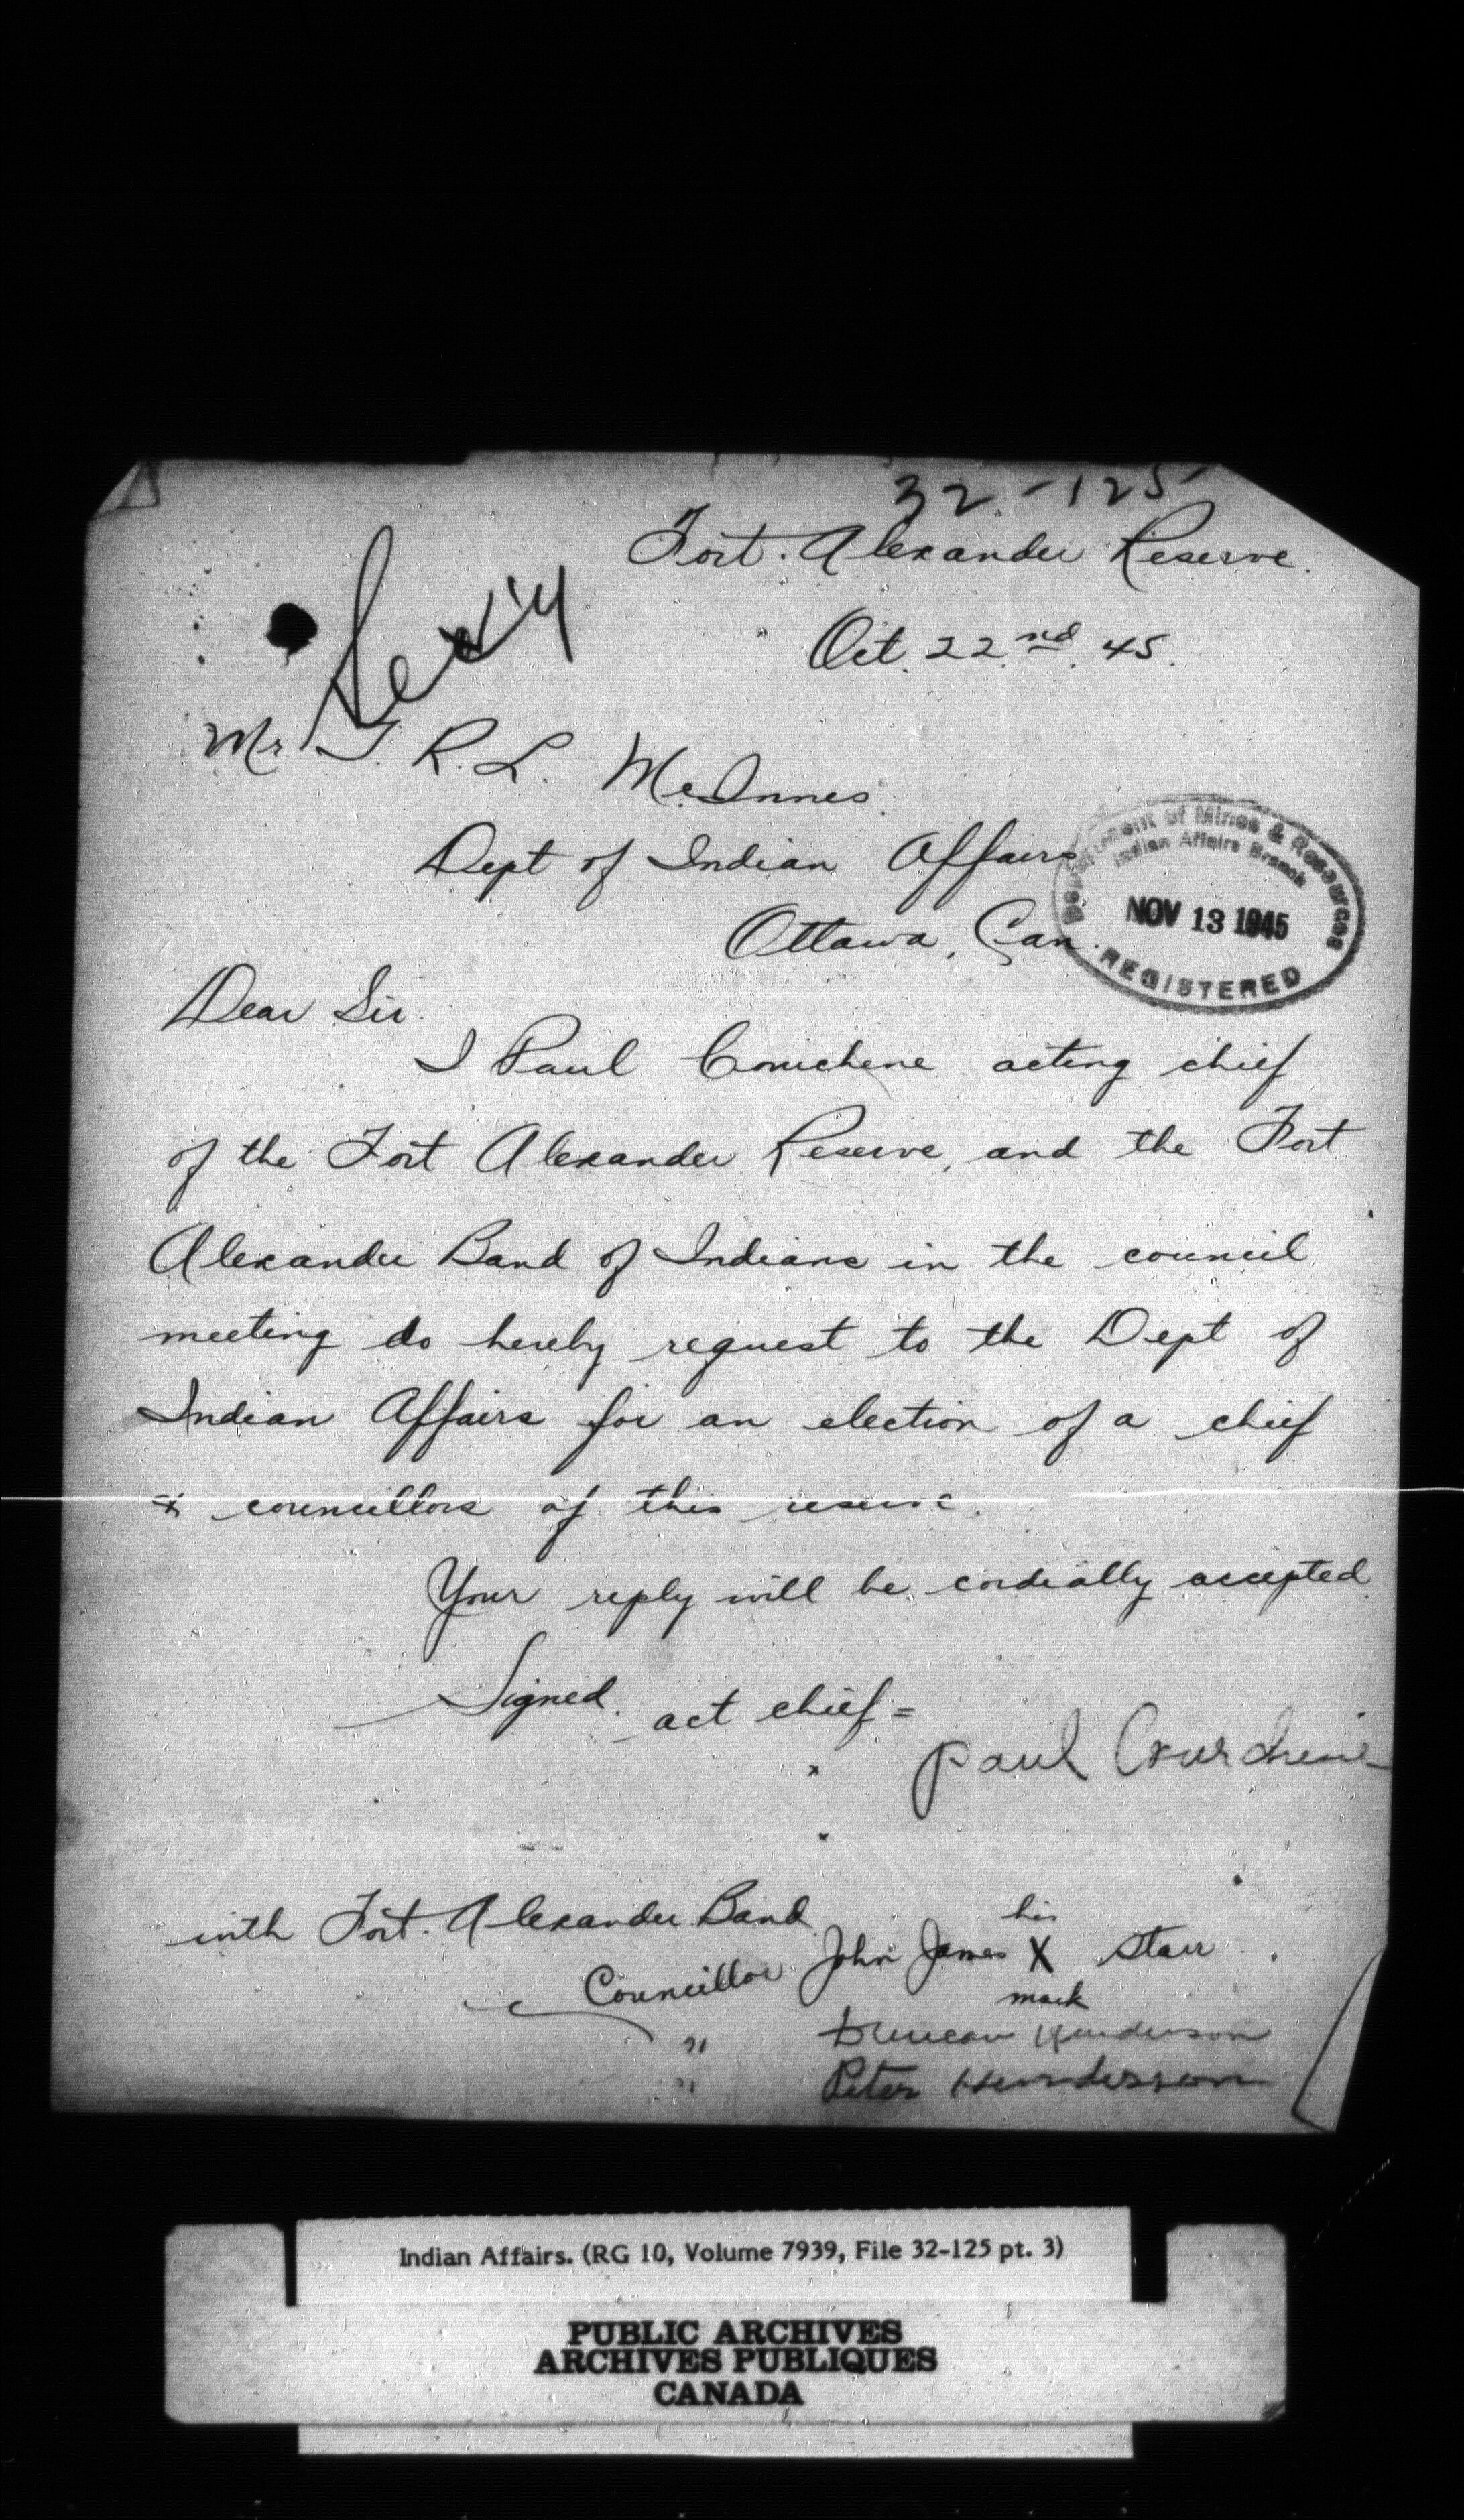 32-125
Fort. Alexander Reserve.
Oct. 22nd. 45.
Mr. T. R. L. McInnes.
Dept of Indian Affairs
Ottawa, Can.
Department of Mines & Resources
Indian Affairs Branch
NOV 13 1945
REGISTERED
Dear Sir.
I Paul Courchene acting chief
of the Fort Alexander Reserve, and the Fort
Alexander Band of Indians in the council
meeting do hereby request to the Dept of
Indian Affairs for an election of a chief
& councillors of this reserve.
Your reply will be cordially accepted
Signed. act chief =
Paul Courchene
with Fort. Alexander Band
his
Councillor John James X Starr
mark
" Duncan Henderson
" Peter Henderson
Indian Affairs. (RG 10, Volume 7939, File 32-125 pt. 3)
PUBLIC ARCHIVES
ARCHIVES PUBLIQUES
CANADA